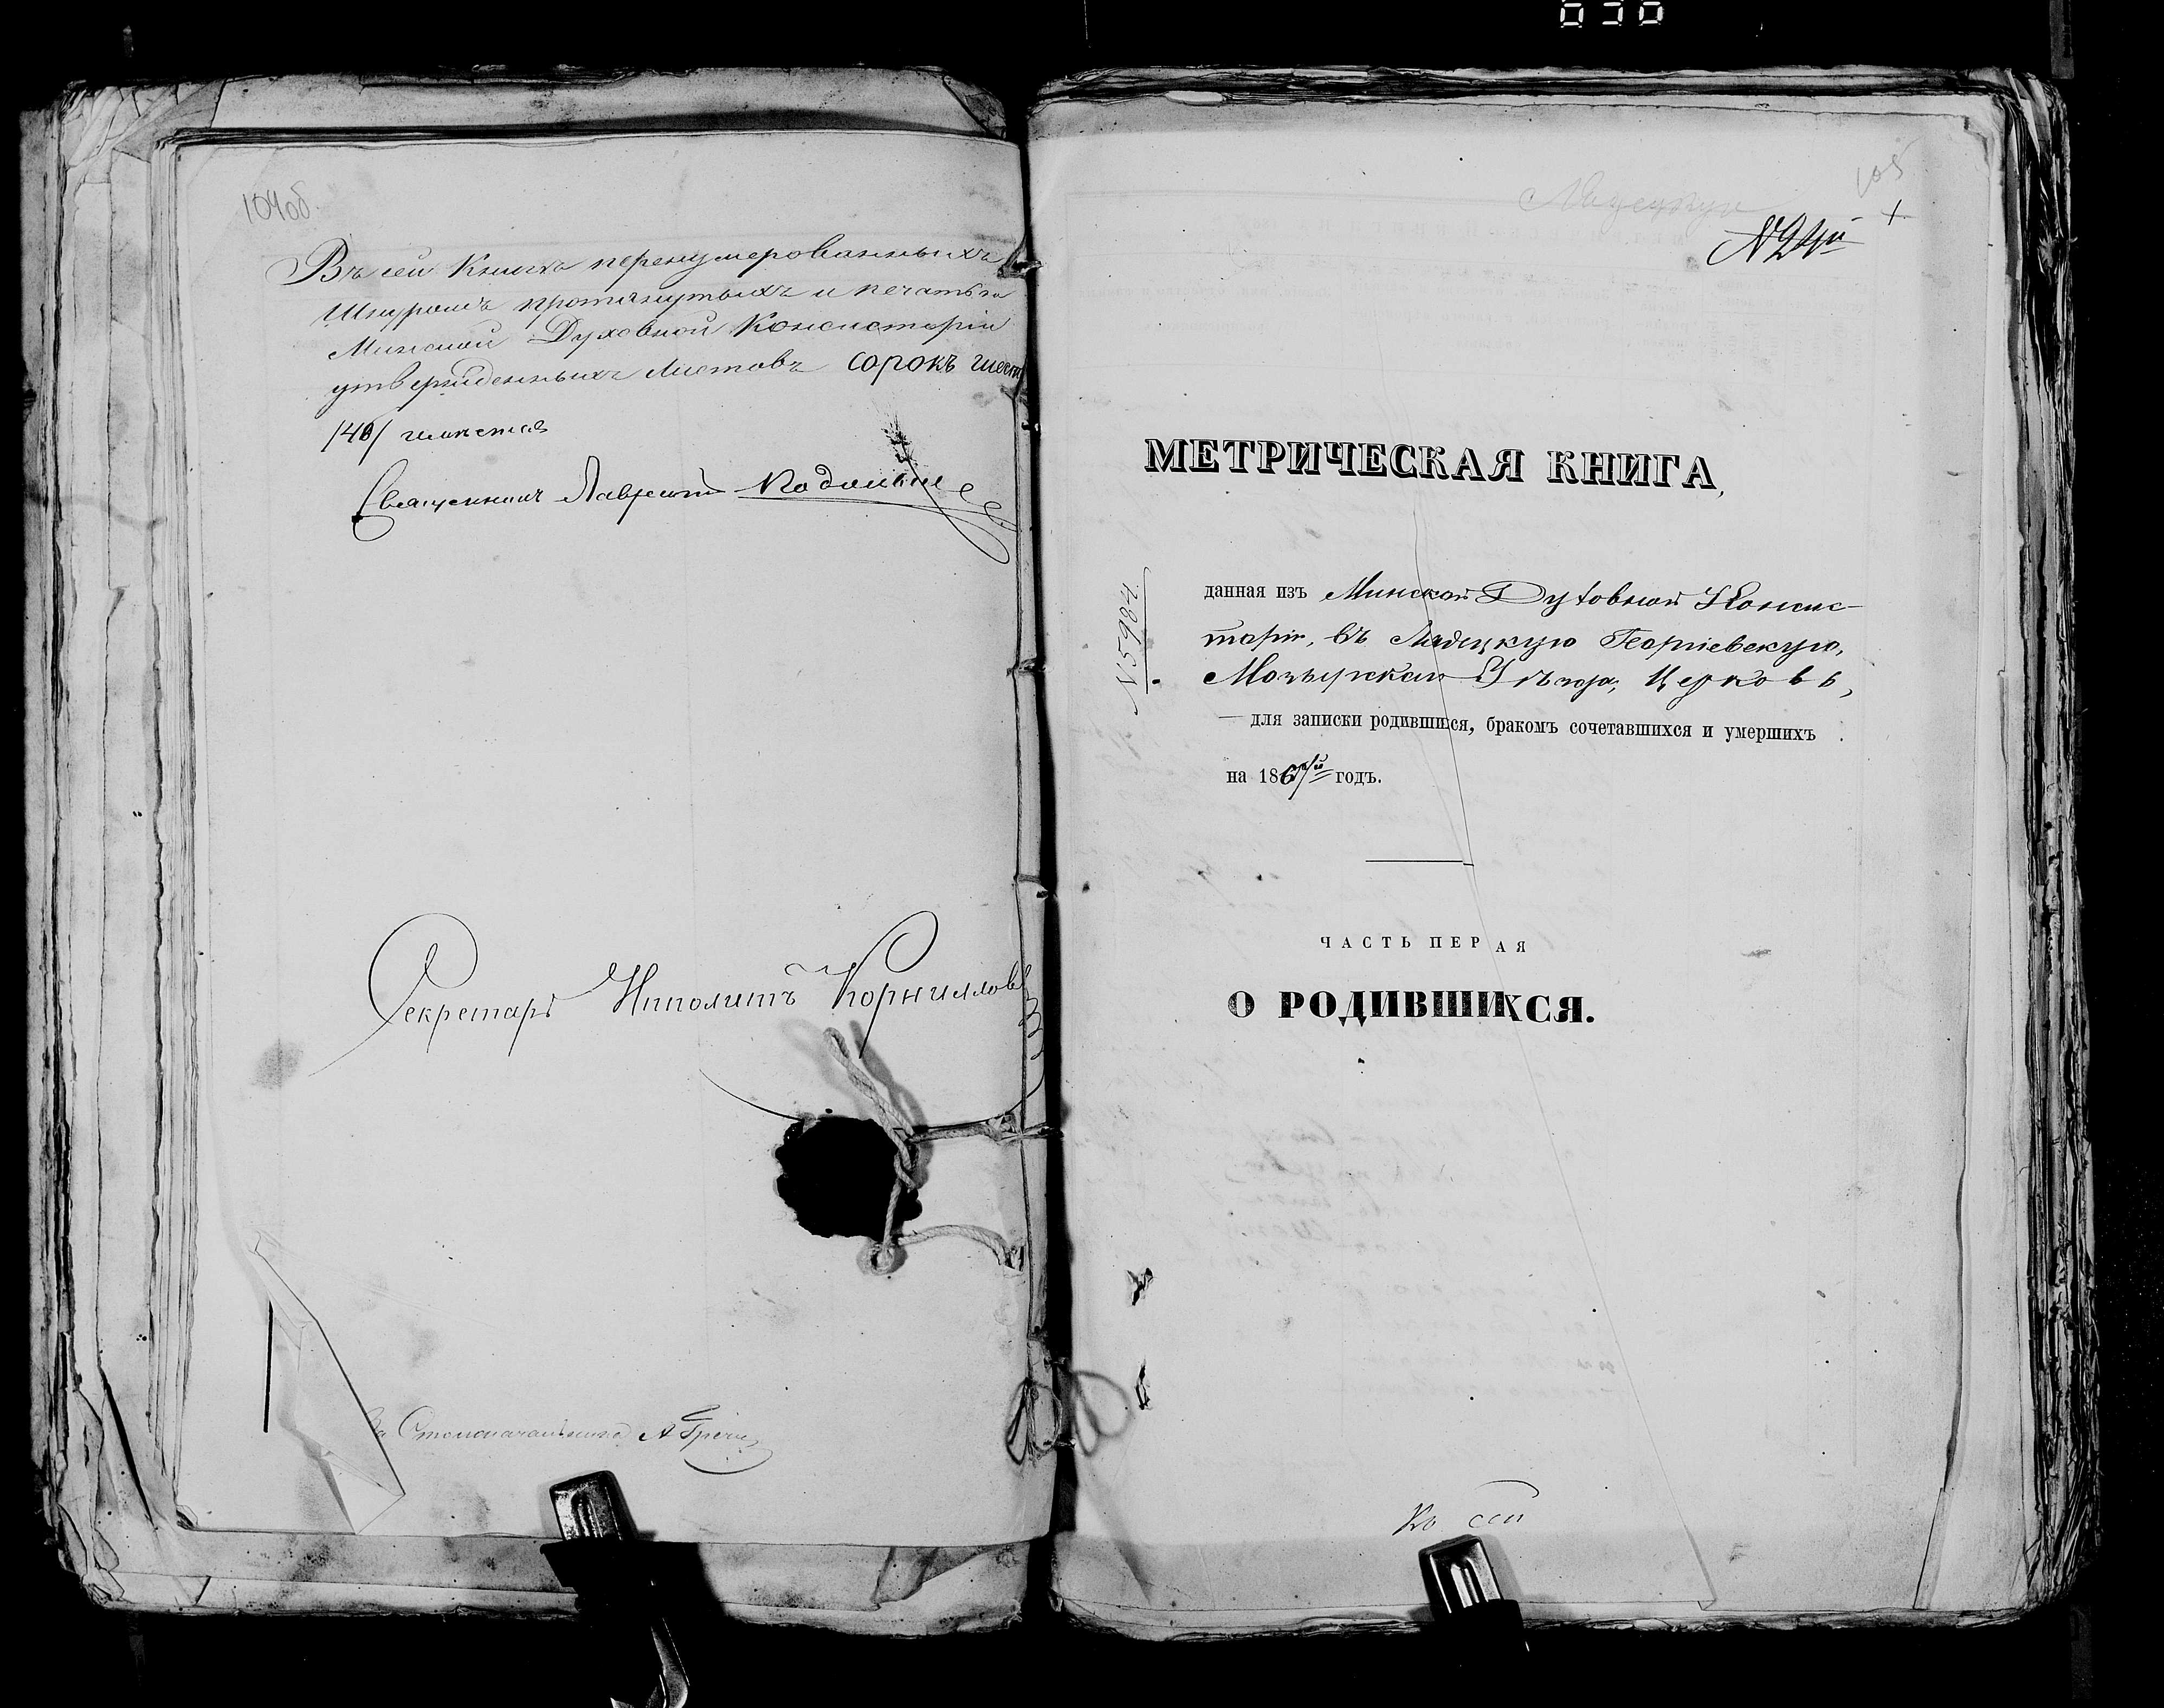 030
104об
Въ сей Книгѣ перенумерованныхъ
Шнуромъ протянутыхъ и печатью
Минской Духовной Консисторіи
утвержденныхъ листовъ сорокъ шесть
/46/
Священникъ Лаврентій
Секретарь Ипполитъ Корниллов
За Столоначальника А
105
№ 24й
МЕТРИЧЕСКАЯ КНИГА,
№ 5984
данная изъ Минской Духовной Консис-
торіи, въ Лядецкую Георгіевскую,
Мозырскаго Уѣзда, Церковь,
для записки родившихся, бракомъ сочетавшихся и умершихъ
на 186 годъ.
ЧАСТЬ ПЕРАЯ
О РОДИВШИХСЯ.